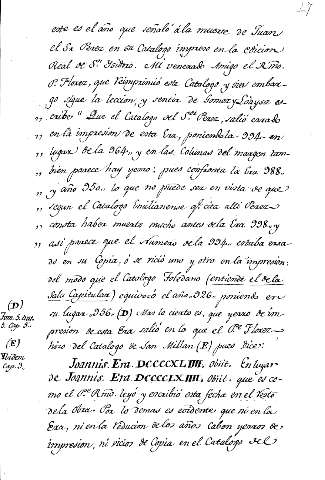 27
este es el año que señaló á la muerte de Juan
el Sr Perez en su Catalogo impreso en la edicion
Real de Sn Isidro. Mi venerado Amigo el Rmo.
P. Florez, que reimprimió este Catalogo y sin embar-
go sigue la leccion, y sentir de Gomez y Loaysa es-
cribe: " Que el Catalogo del Sor Perez, salió errado
,, en la impresion de esta Era, poniendola 994. en
,, lugar de la 964,, y en las Colunas del margen tam-
,, bien parece hay yerro; pues confronta la Era 988.
,, y año 950,, lo que no puede ser en vista de que
,, segun el Catalogo Emilianense qe cita alli Perez
,, consta haber muerto mucho antes de la Era 998. y
,, asi parece que el Numero de la 994,, estaba erra-
do en su Copia, ó se vició uno y otro en la impresion:
del modo que el Catalogo Toledano (entiende el de la
Sala Capitular) equivocó el año 926. poniendo en
su lugar, 956. (D) Mas lo cierto es, que yerro de im-
presion de esta Era salió en la que el Pe. Florez
hizo del Catalogo de San Millan (E) pues dice:
Joannis. Era. DCCCCXLIIII, obiit. En lugar
de Joannis. Era. DCCCCLXIIII, obiit. que es co-
mo el Pe Rmo. leyó y escribió esta fecha en el Texto
de la Obra. Por lo demas es evidente que ni en la
Era, ni en la reducion de los años caben yerros de
impresion, ni vicios de Copia en el Catalogo del
(D)
Tom. 5. trat.
5. Cap. 3.
(E)
Ibidem.
Cap. 3.